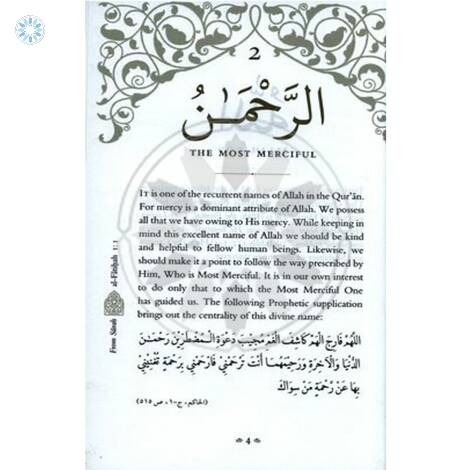 2
الرَّحْمَـٰنُ
THE MOST MERCIFUL
IT is one of the recurrent names of Allah in the Qur'ān.
For mercy is a dominant attribute of Allah. We possess
all that we have owing to His mercy. While keeping in
mind this excellent name of Allah we should be kind
and helpful to fellow human beings. Likewise, we
should make it a point to follow the way prescribed by
Him, Who is Most Merciful. It is in our own interest
to do only that to which the Most Merciful One
has guided us. The following Prophetic supplication
brings out the centrality of this divine name:
اللّهُمَّ فَارِجَ الْهَمِّ كَاشِفَ الْغَمِّ مُجِيْبَ دَعْوَةِ الْـمُضْطَرِّيْنَ رَحْمٰنَ
الدُّنْيَا وَالْآخِرَةِ وَرَحِيْمَهُمَا أَنْتَ تَرْحَمُنِيْ فَارْحَمْنِيْ بِرَحْمَةٍ تُغْنِيْنِيْ
بِهَا عَنْ رَّحْمَةِ مَنْ سِوَاكَ
(الحاكم، ج-١، ص ٥١٥)
From Sūrah al-Fātiḥah 1:1
4